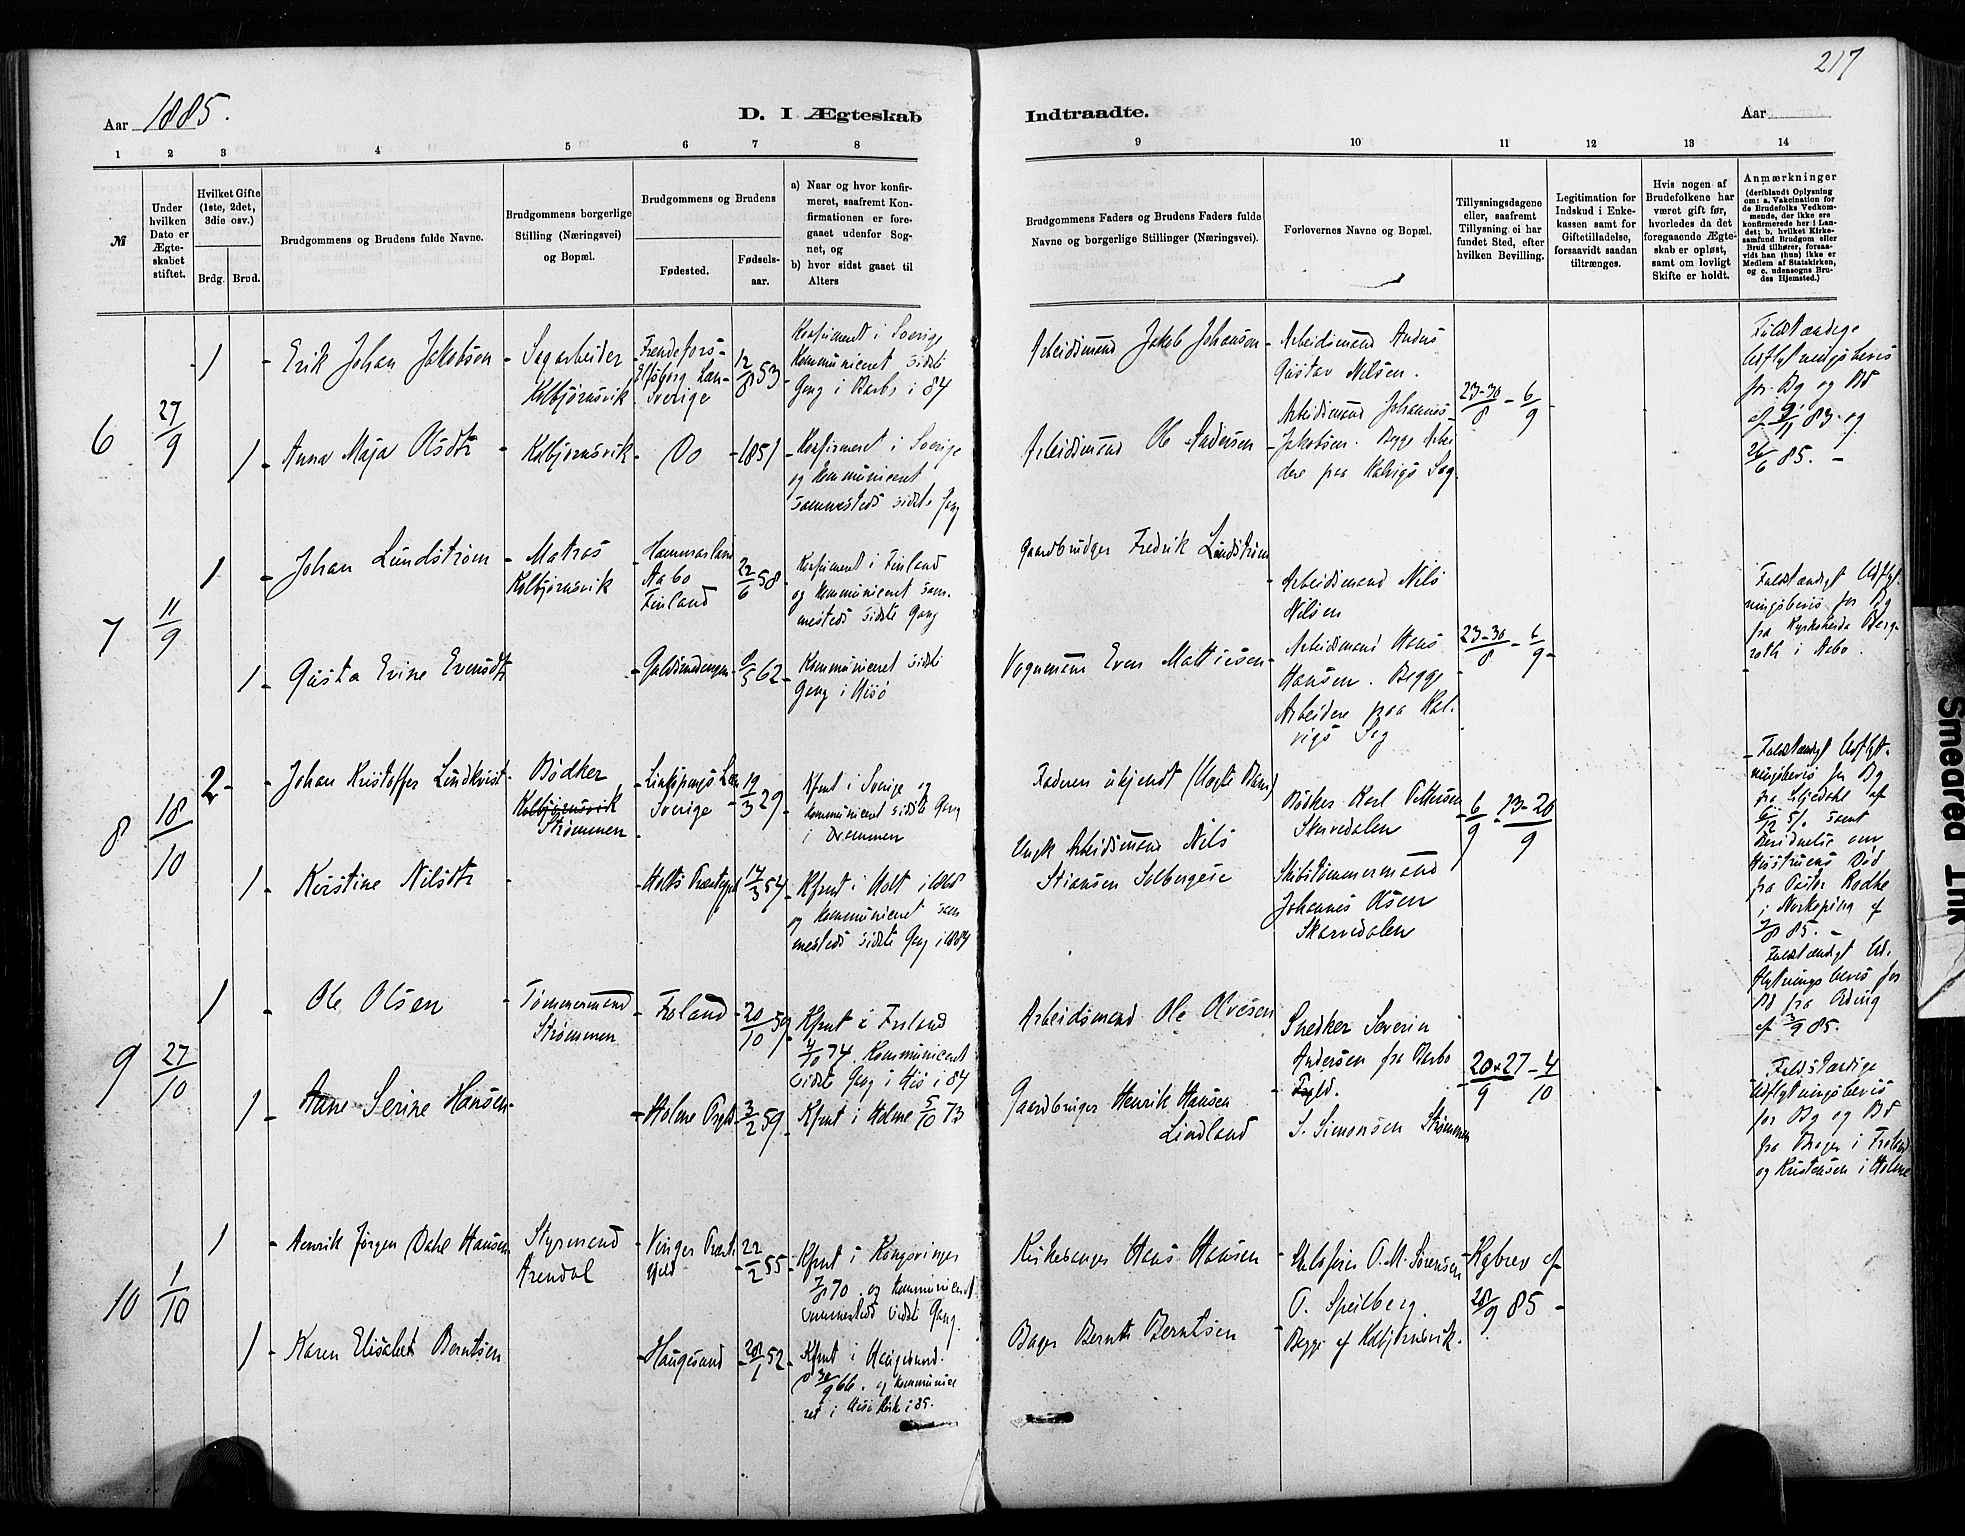 217
Aar 1885.
D. I Ægteskab
Indtraadte.
Aar
1 2 3 4 5 6 7 8
9 10 11 12 13 14
№
Under hvilken Dato er Ægteskabet stiftet.
Hvilket Gifte (1ste, 2det, 3die osv.)
Brdg. Brud.
Brudgommens og Brudens fulde Navne.
Brudgommens borgerlige Stilling (Næringsvei) og Bopæl.
Brudgommens og Brudens
Fødested.
Fødsels-aar.
a) Naar og hvor konfirmeret, saafremt Konfirmationen er foregaaet udenfor Sognet, og
b) hvor sidst gaaet til Alters
Brudgommens Faders og Brudens Faders fulde Navne og borgerlige Stillinger (Næringsvei).
Forlovernes Navne og Bopæl.
Tillysningsdagene eller, saafremt Tillysning ei har fundet Sted, efter hvilken Bevilling.
Legitimation for Indskud i Enkekassen samt for Giftetilladelse, forsaavidt saadan tiltrænges.
Hvis nogen af Brudefolkene har været gift før, hvorledes da det foregaaende Ægteskab er opløst, samt om lovligt Skifte er holdt.
Anmærkninger
(deriblandt Oplysning om: a. Vakcination for de Brudefolks Vedkommende, der ikke ere konfirmerede her i Landet; b. hvilket Kirkesamfund Brudgom eller Brud tilhører, forsaavidt han (hun) ikke er Medlem af Statskirken, og c. udensogns Brudes Hjemsted.)
6
27/9
1
Erik Johan Jakobsen
Sagarbeider
Kolbjørnsvik
Frendefors
Elfsborg Lan
Sverige
12/8 53
Konfirmeret i Sverige
Kommuniceret sidste
Gang i Barbo i 84
Arbeidsmand Jakob Johansen
Arbeidsmand Anders
Gustav Nilsen.
Arbeidsmand Johannes
Jakobsen. Begge Arbei
dere paa Kalvigs Sag
23-30/8 - 6/9
Fuldstændige
Udflytningsbevis
for Bg og Bd
83 og
26/6 85.
1
Anna Maja Olsdtr
Kolbjørnsvik
Do
1851
Konfirmeret i Sverige
og kommuniceret
sammesteds sidste Gang
Arbeidsmand Ole Andersen
7
11/9
1
Johan Lundstrøm
Matros
Kolbjørnsvik
Hammarland
Aabo
Finland
22/6 58
Konfirmeret i Finland
og kommuniceret sam-
mesteds sidste Gang
Gaardbruger Fredrik Lundstrøm
Arbeidsmand Nils
Nilsen
Arbeidsmand Hans
Hansen. Begge
Arbeidere paa Kal-
vigs Sag
23-30/8 - 6/9
Fuldstændigt Udflyt-
ningsbevis for Bg
fra Kyrkoherde Berg-
roth i Aabo.
1
Gusta Evine Evensdtr
9/5 62
Kommuniceret sidste
Gang i Hisø
Vognmand Even Mathiesen
8
18/10
2
Johan Kristoffer Lundkvist
Bødker
Kolbjørnsvik
Strømmen
Linkjøpings Lan
Sverige
19/3 29
Kfmt i Sverige og
kommuniceret sidste Gang
i Drammen
Faderen ukjendt (Uægte Barn)
Bødker Karl Pettersen
Skarvedalen
Skibstømmermand
Johannes Olsen
Skarvedalen
6/9 - 13-20/9
Fuldstændigt Udflyt-
ningsbevis for Bg
af
51. samt
Hustruens Død
fra Pastor Rodhe
i Norkøping af
85.
Fuldstændigt Ud-
flytningsbevis for
Bd fra
af 3/9 85.
1
Kirstine Nilsdtr
Holts Præstegjeld
17/3 54
Kfmt i Holt i 1868
og kommuniceret sam
mesteds sidste Gang i 1884
Ungk Arbeidsmand Nils
Stiansen Solbergeie
9
27/10
1
Ole Olsen
Tømmermand
Strømmen
Froland
20/10 59
Kfmt i Froland
4/10 74. Kommuniceret
sidste Gang i Hisø i 84
Arbeidsmand Ole Olvesen
Snedker Severin
Andersen fra Barbo
S. Simonsen Strømmen
20-27/9 - 4/10
Fuldstændige
Udflytningsbevis
for Bg og Bd
fra Brager i Froland
og Kristensen i Holme
1
Anne Serine Hansen
Holme Prgld
3/2 59
Kfmt i Holme 5/10 73
Gaardbruger Henrik Hansen
Lindland
10
1/10
1
Henrik Jørgen Dahl Hansen
Styrmand
Arendal
Vinger Præste
gjeld
22/2 55
Kfmt i Kongsvinger
70. og kommuniceret
sammesteds sidste Gang.
Kirkesanger Hans Hansen
Skibsfører O. M. Sørensen
O. Speilberg.
Begge af Kolbjørnsvik.
Kgbrev af
28/9 85
1
Karen Elisabet Berntsen
Haugesund
28/1 52
Kfmt i Haugesund.
30/9 66. og kommunice
ret i Hisø Kirk i 85.
Bager Bernth Berntsen
Smeared Ink